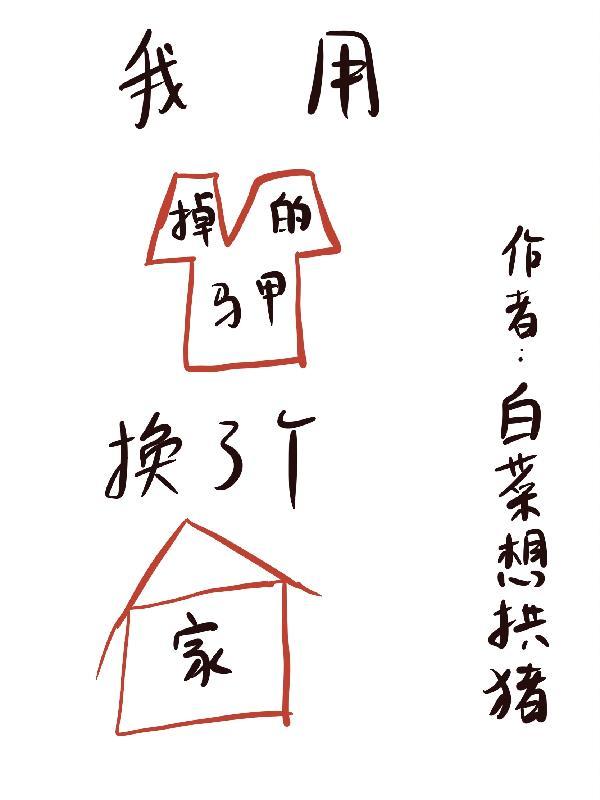 我 用
掉的
马甲
换了个
家
作者：白菜想拱猪